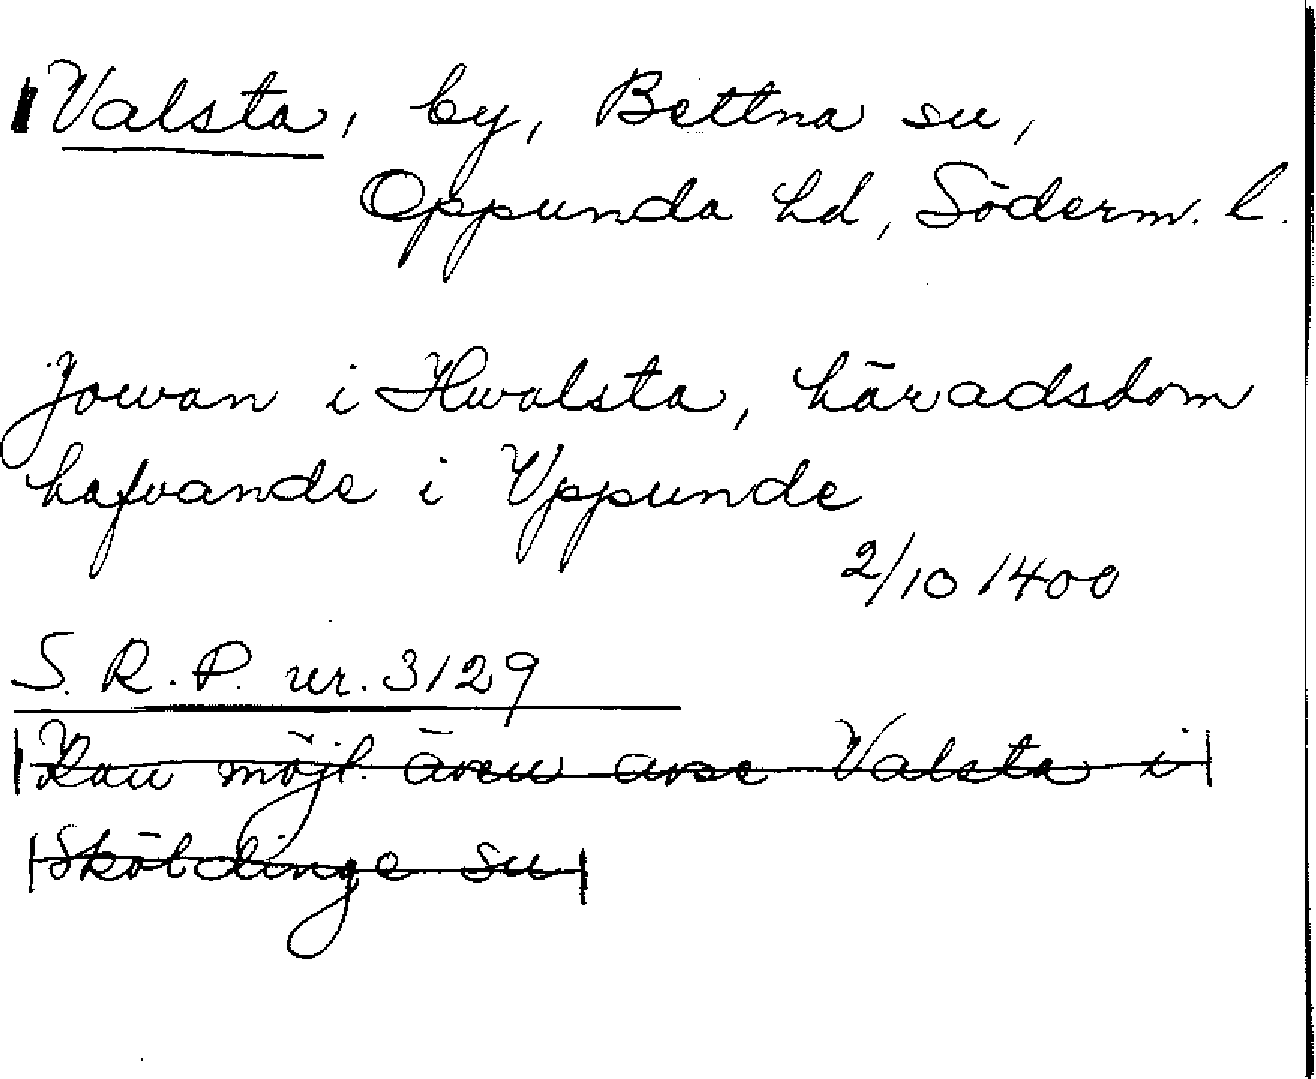 Valsta, by, Bettna sn,
Oppunda hd, Söderm. l.
Jowan i Hwalsta, häradsdom
hafvande i Vppunde
2/10 1400
S. R. P. nr. 3129
Kan möjl. även avse Valsta i
Sköldinge sn